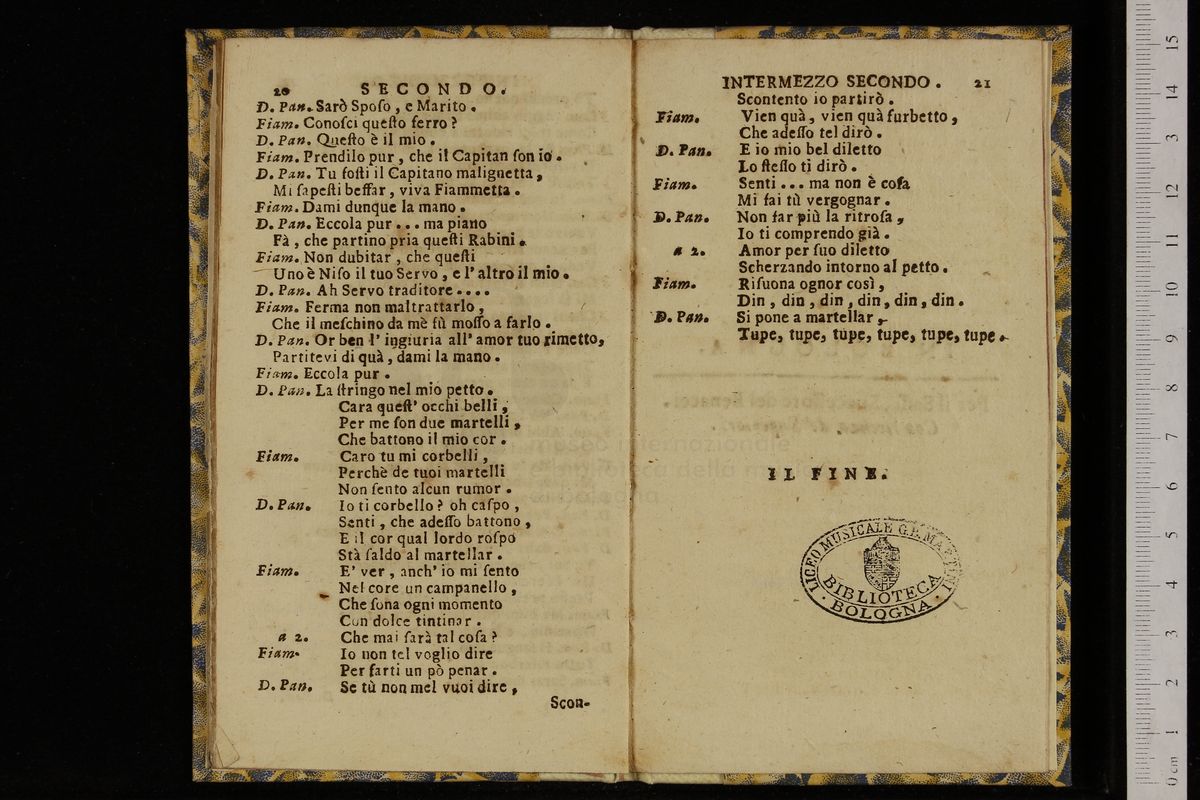 20 SECONDO.
D. Pan. Sarò Spoſo, e Marito.
Fiam. Conoſci queſto ferro?
D. Pan. Queſto è il mio.
Fiam. Prendilo pur, che il Capitan ſon io.
D. Pan. Tu foſti il Capitano malignetta,
Mi ſapeſti beffar, viva Fiammetta.
Fiam. Dami dunque la mano.
D. Pan. Eccola pur... ma piano
Fà, che partino pria queſti Rabini.
Fiam. Non dubitar, che queſti
Uno è Niſo il tuo Servo, e l' altro il mio.
D. Pan. Ah Servo traditore....
Fiam. Ferma non maltrattarlo,
Che il meſchino da mè fù moſſo a farlo.
D. Pan. Or ben l' ingiuria all' amor tuo rimetto,
Partitevi di quà, dami la mano.
Fiam. Eccola pur.
D. Pan. La ſtringo nel mio petto.
Cara queſt' occhi belli,
Per me ſon due martelli,
Che battono il mio cor.
Fiam. Caro tu mi corbelli,
Perchè de tuoi martelli
Non ſento alcun rumor.
D. Pan. Io ti corbello? oh caſpo,
Senti, che adeſſo battono,
E il cor qual lordo roſpo
Stà ſaldo al martellar.
Fiam. E' ver, anch' io mi ſento
Nel core un campanello,
Che ſona ogni momento
Con dolce tintinar.
a 2. Che mai ſarà tal coſa?
Fiam. Io non tel voglio dire
Per farti un pò penar.
D. Pan. Se tù non mel vuoi dire,
Scon-
INTERMEZZO SECONDO. 21
Scontento io partirò.
Fiam. Vien quà, vien quà furbetto,
Che adeſſo tel dirò.
D. Pan. E io mio bel diletto
Lo ſteſſo ti dirò.
Fiam. Senti... ma non è coſa
Mi fai tù vergognar.
D. Pan. Non far più la ritroſa,
Io ti comprendo già.
a 2. Amor per ſuo diletto
Scherzando intorno al petto.
Fiam. Riſuona ognor così,
Din, din, din, din, din, din.
D. Pan. Si pone a martellar,
Tupe, tupe, tupe, tupe, tupe, tupe.
IL FINE.
LICEO MUSICALE G.B. MARTINI
BIBLIOTECA
BOLOGNA
museo internazionale
e biblioteca della musica
di bologna